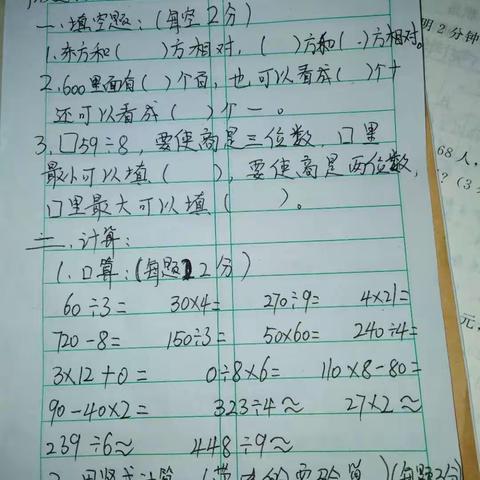 一、填空题：（每空2分）
1.东方和（ ）方相对，（ ）方和（ ）方相对。
2.600里面有（ ）个百，也可以看成（ ）个十
还可以看成（ ）个一。
3.□59÷8，要使商是三位数，口里
最小可以填（ ），要使商是两位数，
口里最大可以填（ ）。
二、计算：
1.口算：（每题2分）
60÷3= 30×4= 270÷9= 4×21=
720-8= 150÷3= 50×60= 240÷4=
3×12+0= 0÷8×6= 110×8-80=
90-40×2= 323÷4≈ 27×2≈
239÷6≈ 448÷9≈
2.用竖式计算（带 的要验算）（每题3分）
明2分钟
68人，
？（3
元，